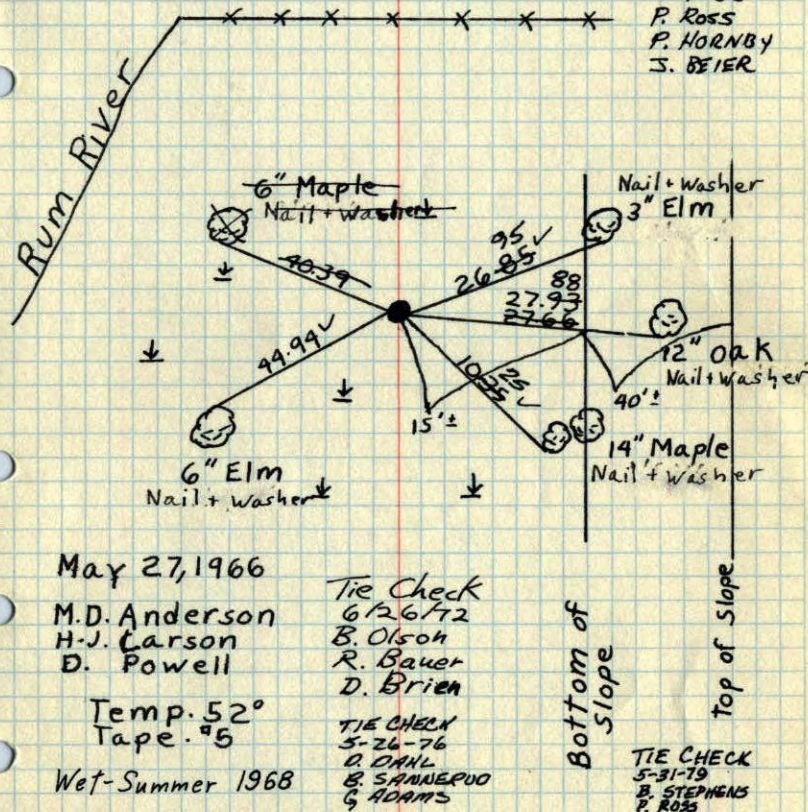 P. ROSS
P. HORNBY
J. BEIER
Rum River
6" Maple
Nail + washer
Nail + washer
3" Elm
40.39
95 ✓
26.85
88
27.93
27.66
12" Oak
Nail + washer
44.94 ✓
25
10.35 ✓
15'±
40'±
14" Maple
Nail + washer
6" Elm
Nail + washer
May 27, 1966
M.D. Anderson
H.J. Larson
D. Powell
Temp. 52°
Tape. #5
Wet-Summer 1968
Tie Check
6/26/72
B. Olson
R. Bauer
D. Brien
TIE CHECK
5-26-76
D. DAHL
B. SANNERUD
G ADAMS
Bottom of
Slope
top of Slope
TIE CHECK
5-31-79
B. STEPHENS
P. ROSS